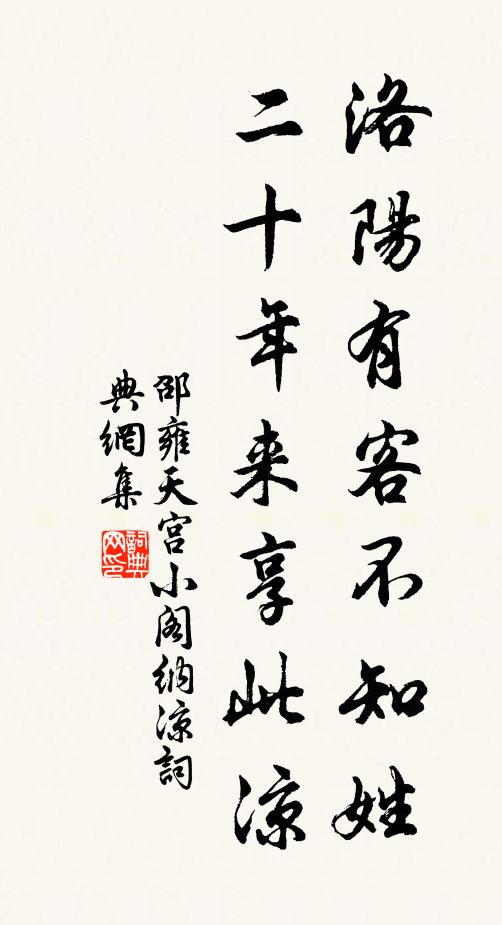 洛陽有客不知姓
二十年来享此涼
邵雍天宫小阁納涼詞
典網集
詞典
网印